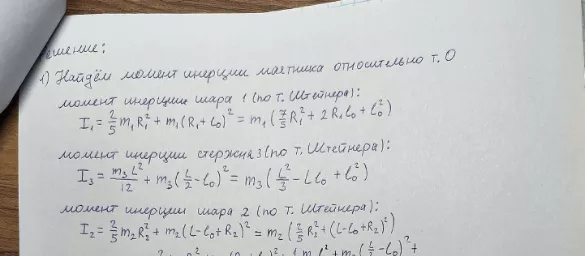 Решение:
1) Найдём момент инерции маятника относительно т. О
момент инерции шара 1 (по т. Штейнера):
I₁ = 2/5 m₁R₁² + m₁(R₁ + l₀)² = m₁(7/5 R₁² + 2R₁l₀ + l₀²)
момент инерции стержня 3 (по т. Штейнера):
I₃ = m₃L²/12 + m₃(L/2 - l₀)² = m₃(L²/3 - Ll₀ + l₀²)
момент инерции шара 2 (по т. Штейнера):
I₂ = 2/5 m₂R₂² + m₂(L - l₀ + R₂)² = m₂(2/5 R₂² + (L - l₀ + R₂)²)